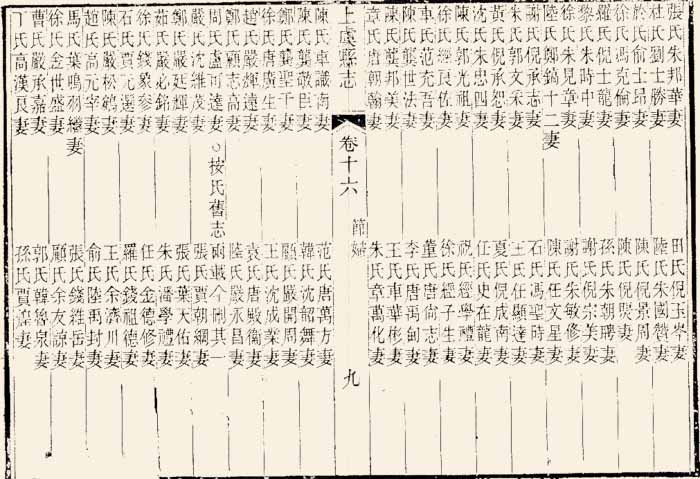 張氏朱邦華妻　田氏倪玉岑妻
杜氏劉士勝妻　陸氏朱國贊妻
於氏俞士昂妻　陳氏倪景周妻
徐氏馮克倫妻　陳氏倪妻
羅氏倪士龍妻　孫氏朱朝聘妻
黎氏朱時中妻　謝氏倪宗美妻
徐氏朱見章妻　謝氏朱敏修妻
陸氏鄭鎬十二妻　陳氏任文星妻
謝氏倪承志妻　石氏馮聖時妻
朱氏郭文采妻　王氏任顯達妻
黃氏倪承恕妻　夏氏倪成南妻
沈氏朱忠四妻　任氏史在龍妻
陳氏郭光祖妻　祝氏經學禮妻
徐氏經良佐妻　徐氏經子生妻
陳氏龔世法妻　董氏唐尙志妻
車氏范充吾妻　李氏唐禹甸妻
陳氏龔邦美妻　王氏車華彬妻
章氏唐朝翰妻　朱氏章萬化妻
上虞縣志　卷十六　節婦　九
陳氏車識南妻　范氏唐萬方妻
陳氏龔敬臣妻　韓氏沈韶舞妻
鄭氏龔聖千妻　顧氏嚴開周妻
徐氏唐廣生妻　王氏沈成業妻
趙氏嚴輝遠妻　袁氏唐殿衡妻
鄭氏顧志高妻　陸氏嚴永昌妻
周氏盧可達妻○按氏舊志兩載今刪其一
嚴氏沈維茂妻　張氏賈朝綱妻
鄭氏嚴廷輝妻　張氏葉天佑妻
茹氏嚴必銘妻　朱氏潘學禮妻
徐氏錢象泰妻　任氏金德修妻
石氏賈元選妻　羅氏錢祖德妻
陳氏嚴松鶴妻　王氏余濟川妻
趙氏高元宰妻　俞氏陸禹封妻
馬氏葉鳴羽繼妻　張氏錢維岳妻
徐氏金世盛妻　顧氏余友諒妻
曹氏嚴承嘉妻　郭氏韓魯泉妻
丁氏高漢良妻　孫氏賈煌妻